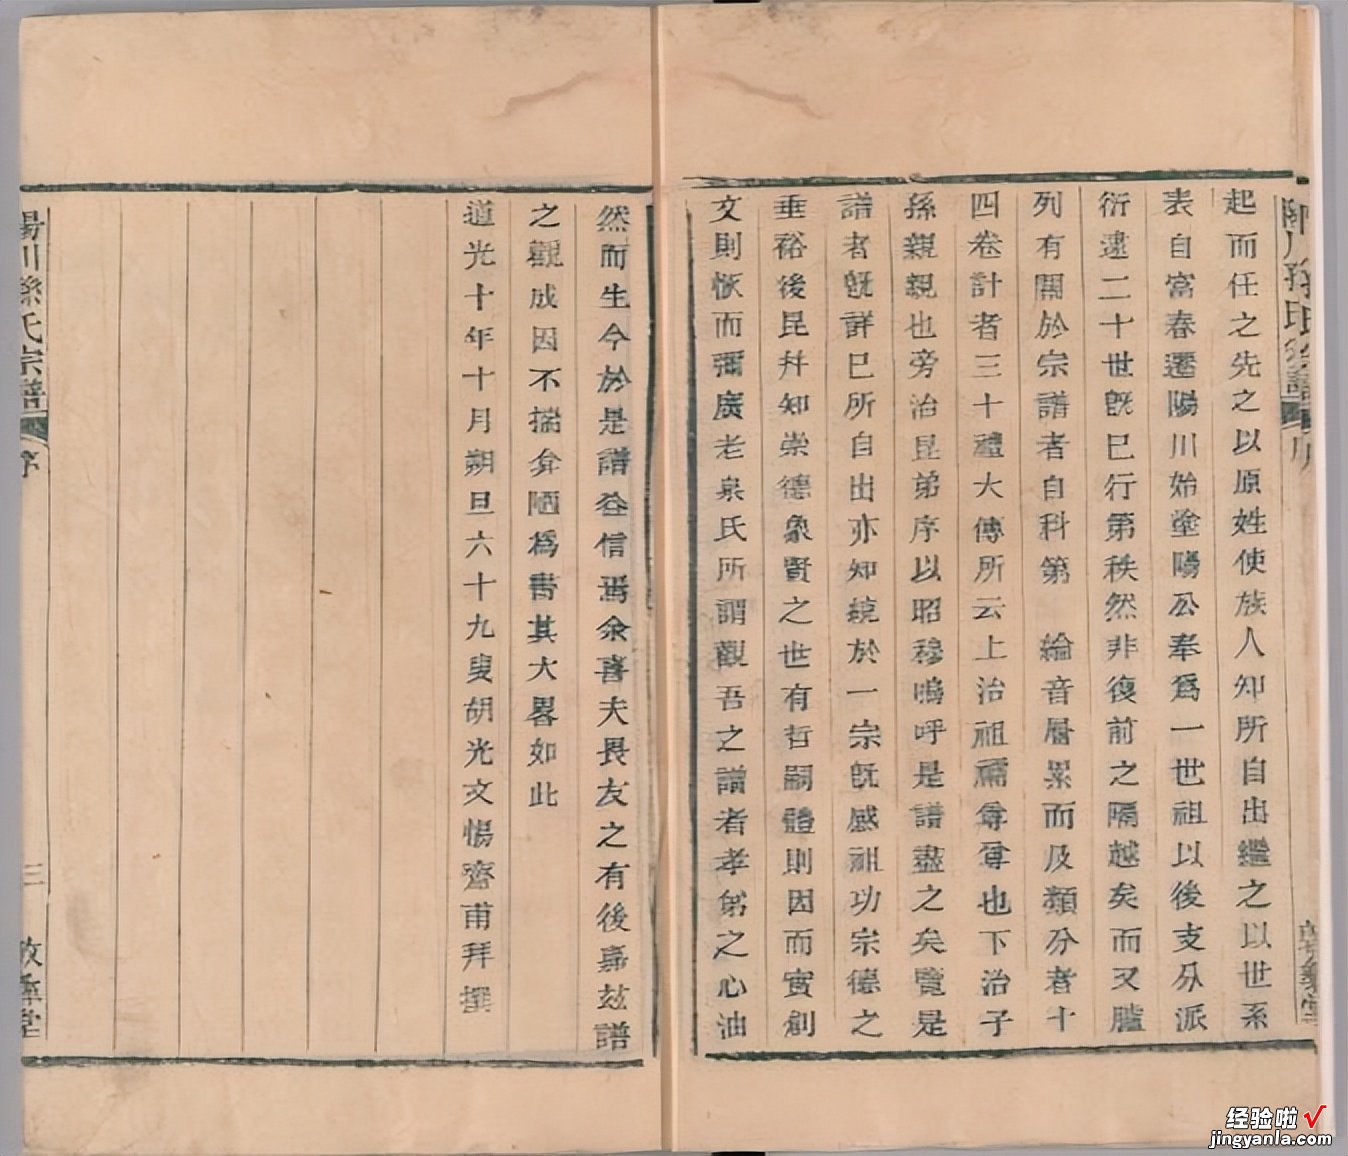 起而任之先之以原姓使族人知所自出繼之以世系
表自富春遷陽川始塗陽公奉爲一世祖以後支分派
衍遠二十世旣已行第秩然非復前之隔越矣而又臚
列有關於宗譜者自科第 綸音層累而及類分者十
四卷計者三十禮大傳所云上治祖禰尊尊也下治子
孫親親也旁治昆弟序以昭穆嗚呼是譜盡之矣覽是
譜者旣詳已所自出亦知統於一宗旣感祖功宗德之
垂裕後昆幷知崇德象賢之世有哲嗣體則因而實創
文則恢而彌廣老泉氏所謂觀吾之譜者孝弟之心油
然而生今於是譜益信焉余喜夫畏友之有後嘉玆譜
之觀成因不揣弇陋爲書其大畧如此
道光十年十月朔旦六十九叟胡光文惕齋甫拜撰
陽川孫氏宗譜
序
三
敦彝堂
经验啦
jingyanla.com